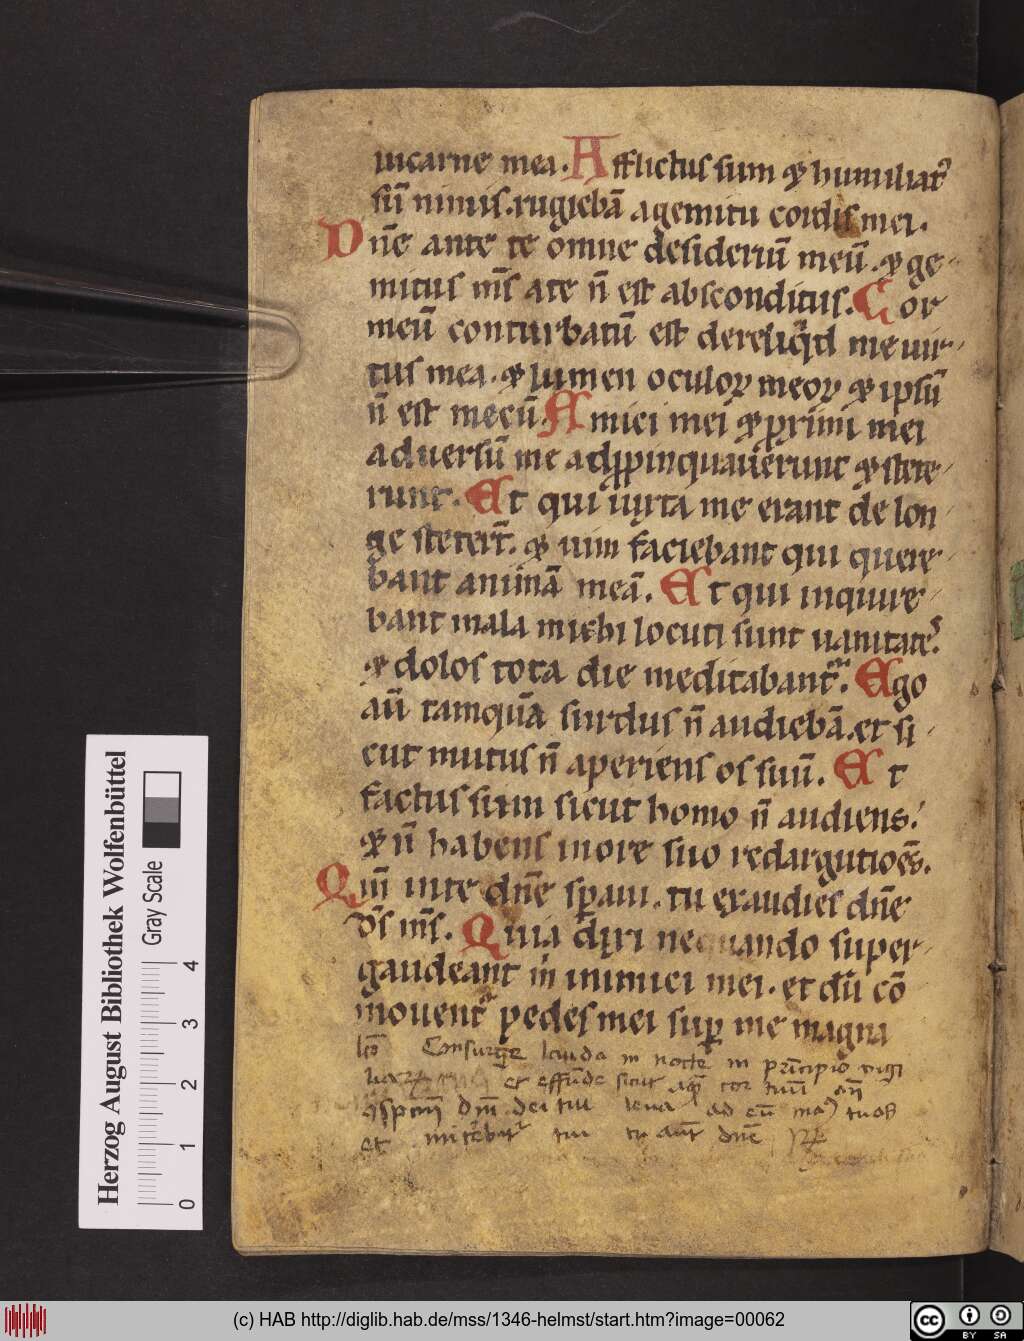 in carne mea. Afflictus sum ⁊ humiliatꝰ
sū nimis. rugiebā agemitu cordis mei.
Dn̄e ante te omne desideriū meū. ⁊ ge
mitus m̄s ate n̄ est absconditus. Cor
meū conturbatū est dereliq̇d me uir
tus mea. ⁊ lumen oculoꝝ meoꝝ ⁊ ipsū
n̄ est mecū. Amici mei ⁊ primi mei
aduersū me adp̱pinquauerunt ⁊ stete
runt. Et qui iuxta me erant de lon
ge stetert̄. ⁊ uim faciebant qui quere
bant animā meā. Et qui inquire
bant mala michi locuti sunt uanitates
⁊ dolos tota die meditabantᷣ. Ego
aū tamquā surdus n̄ audiebā. et si
cut mutus n̄ aperiens os suū. Et
factus sum sicut homo n̄ audiens.
⁊ n̄ habens inore suo redargutioēs.
Qm̄ inte dn̄e sp̱aui. tu exaudies dn̄e
ds̄ m̄s. Quia dixi nequando super
gaudeant m̄ inimici mei. et dū cō
mouentᷣ pedes mei sup̱ me magna
Consurge lauda in nocte in principio vigi
liarum et effūde sicut aqā cor tuū an̄
9spectū dn̄i dei tui leua ad eū man9 tuas
et tu aūt dn̄e
Herzog August Bibliothek Wolfenbüttel
Gray Scale
0 1 2 3 4
(c) HAB http://diglib.hab.de/mss/1346-helmst/start.htm?image=00062
cc BY SA